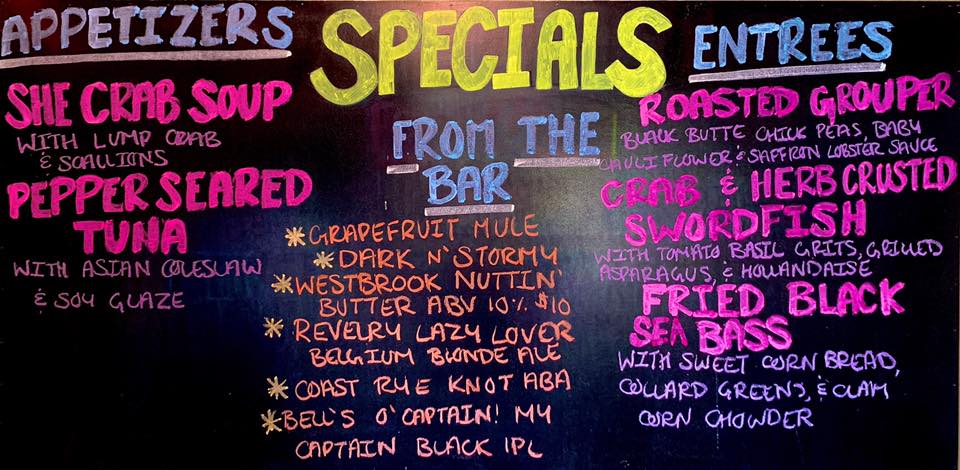 APPETIZERS
SHE CRAB SOUP
WITH LUMP CRAB
& SCALLIONS
PEPPER SEARED
TUNA
WITH ASIAN COLESLAW
& SOY GLAZE
SPECIALS
FROM THE
BAR
* GRAPEFRUIT MULE
* DARK N' STORMY
* WESTBROOK NUTTIN'
BUTTER ABV 10% $10
* REVELRY LAZY LOVER
BELGIUM BLONDE ALE
* COAST RYE KNOT ABA
* BELL'S O'CAPTAIN! MY
CAPTAIN BLACK IPL
ENTREES
ROASTED GROUPER
BLACK BUTTE CHICK PEAS, BABY
CAULIFLOWER & SAFFRON LOBSTER SAUCE
CRAB & HERB CRUSTED
SWORDFISH
WITH TOMATO BASIL GRITS, GRILLED
ASPARAGUS, & HOLLANDAISE
FRIED BLACK
SEA BASS
WITH SWEET CORN BREAD,
COLLARD GREENS, & CLAM
CORN CHOWDER